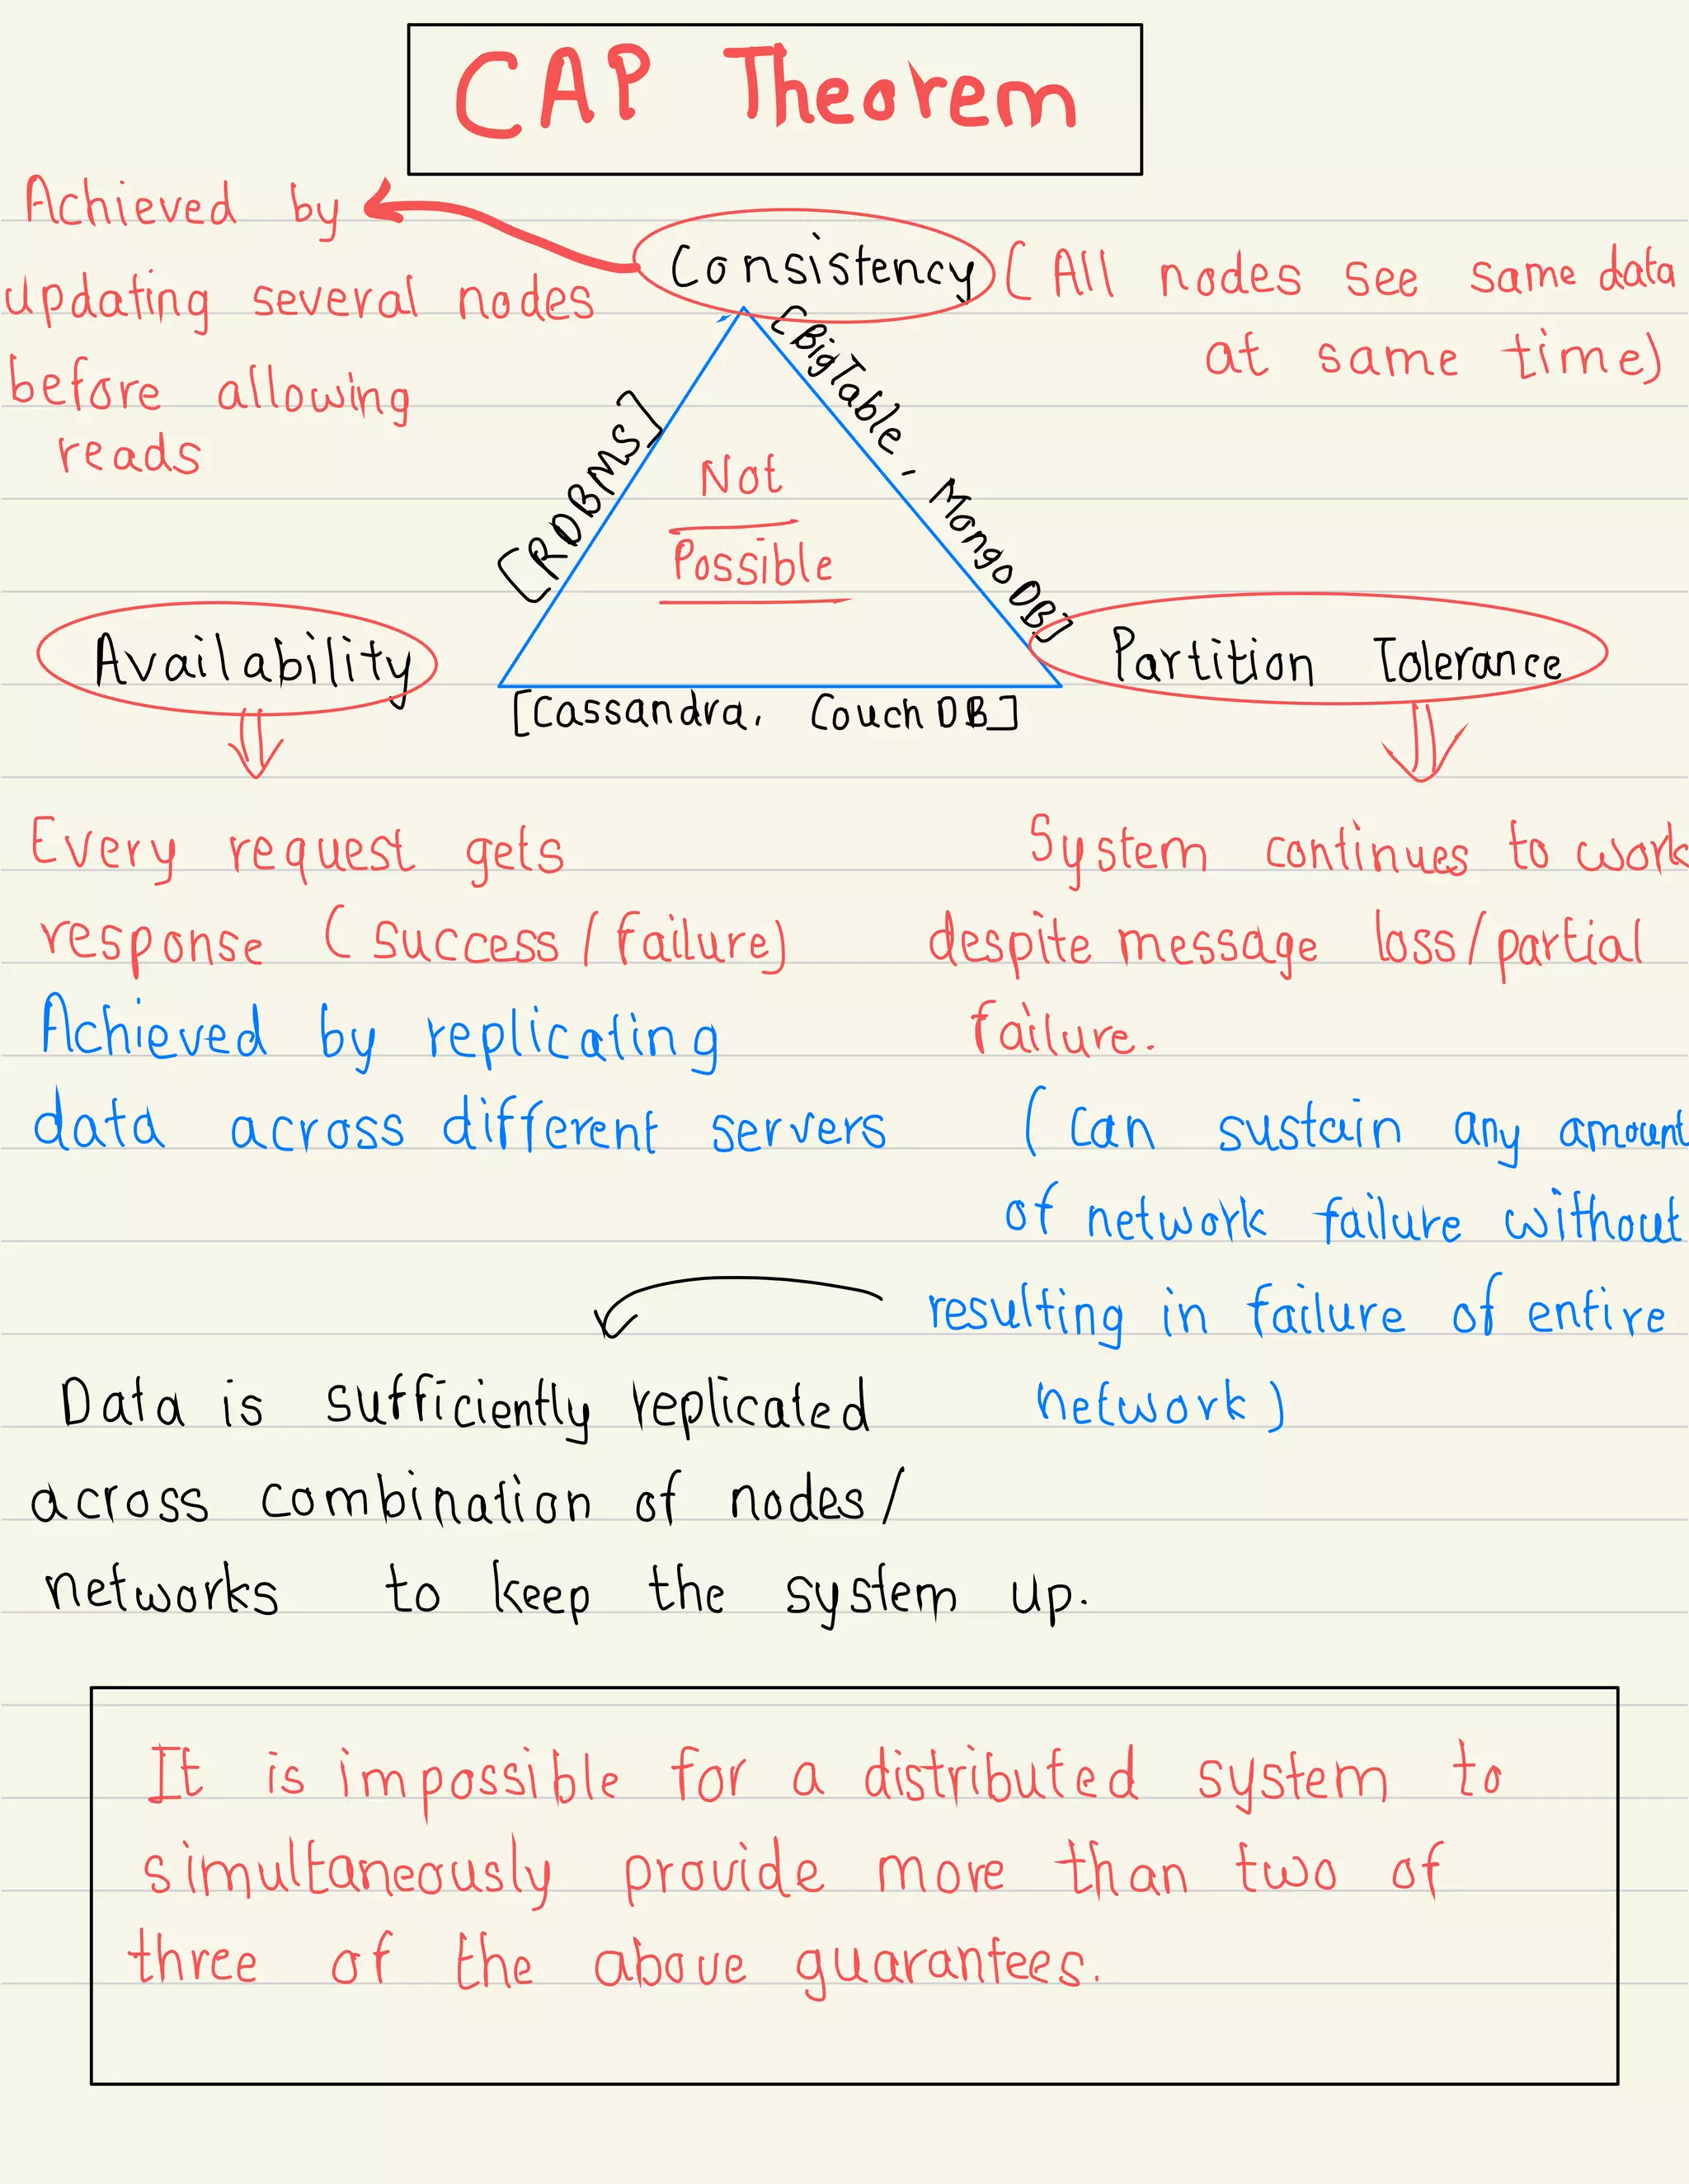 CAP Theorem
Achieved by
updating several nodes
before allowing
reads
Consistency
(All nodes see same data
at same time)
[RDBMS]
[BigTable, MongoDB]
Not
Possible
Availability
[Cassandra, CouchDB]
Partition Tolerance
Every request gets
response (success/failure)
Achieved by replicating
data across different servers
System continues to work
despite message loss/partial
failure.
(Can sustain any amount
of network failure without
resulting in failure of entire
network)
Data is sufficiently replicated
across combination of nodes/
networks to keep the system up.
It is impossible for a distributed system to
simultaneously provide more than two of
three of the above guarantees.